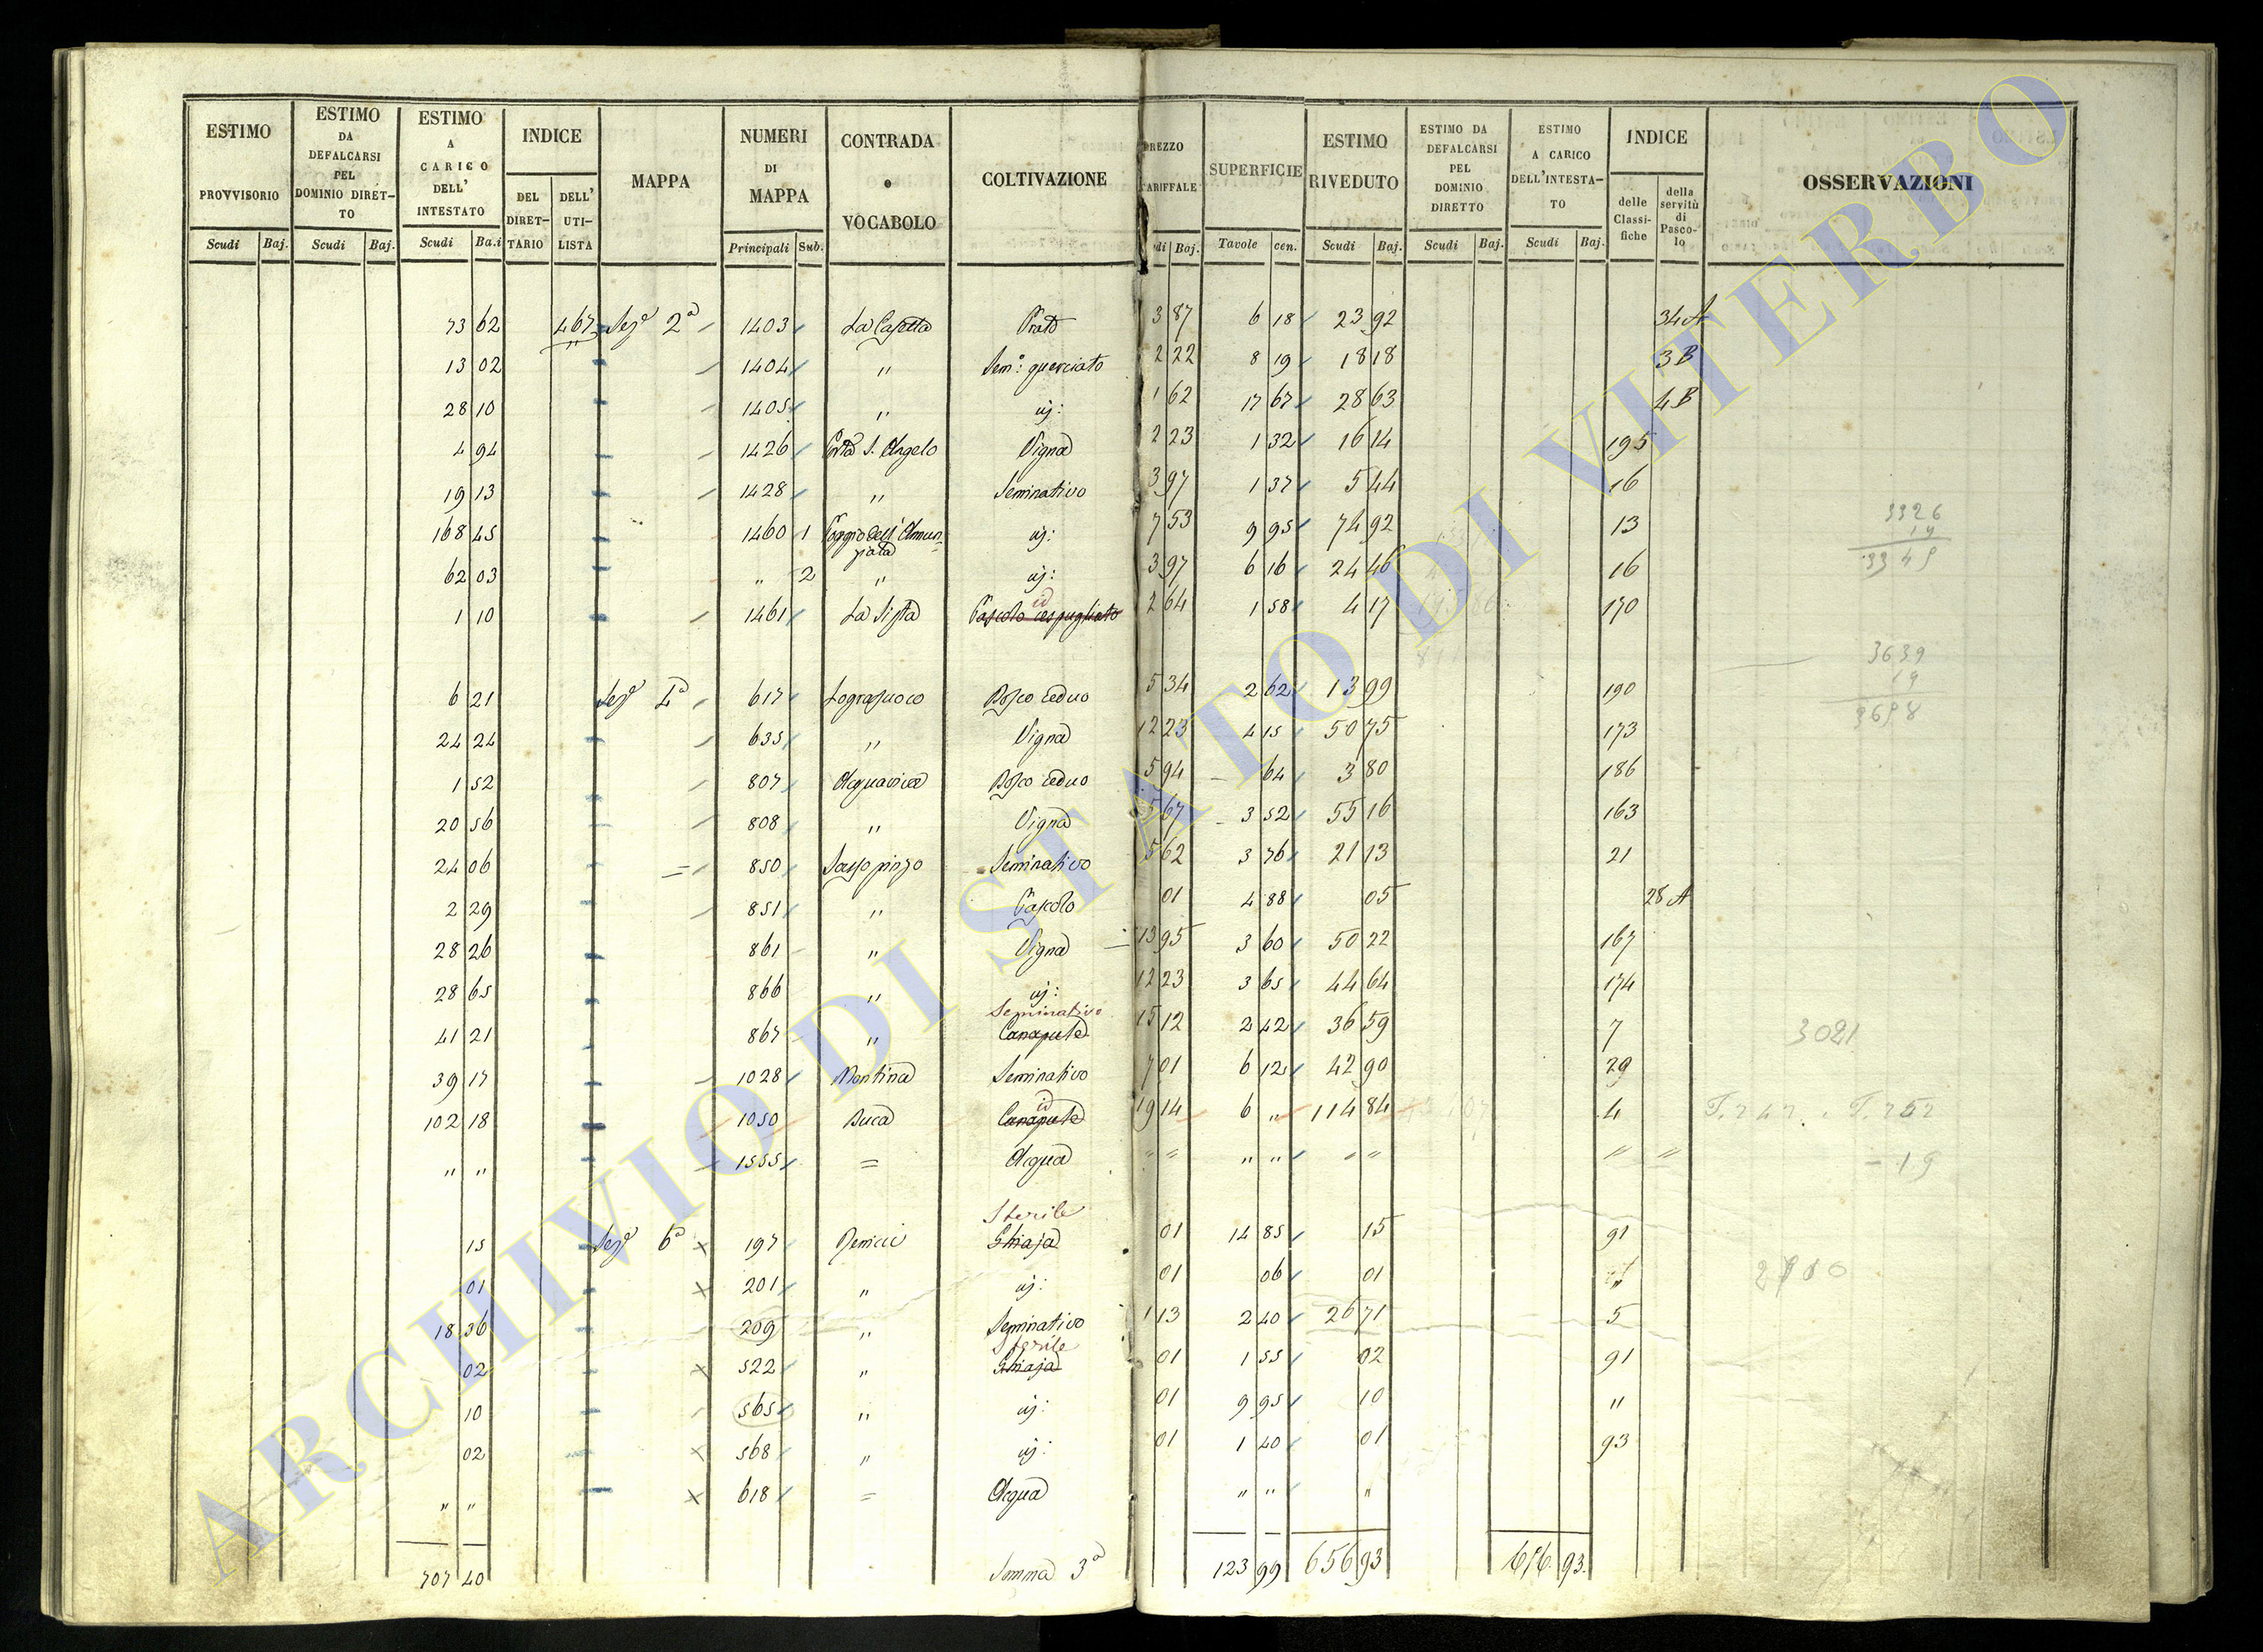 ESTIMO PROVVISORIO Scudi Baj.
ESTIMO DA DEFALCARSI PEL DOMINIO DIRET-TO Scudi Baj.
ESTIMO A CARICO DELL' INTESTATO Scudi Ba.i
INDICE DEL DIRET-TARIO DELL' UTI-LISTA
MAPPA
NUMERI DI MAPPA Principali Sub.
CONTRADA o VOCABOLO
COLTIVAZIONE
PREZZO TARIFFALE di Baj.
SUPERFICIE Tavole cen.
ESTIMO RIVEDUTO Scudi Baj.
ESTIMO DA DEFALCARSI PEL DOMINIO DIRETTO Scudi Baj.
ESTIMO A CARICO DELL'INTESTA-TO Scudi Baj.
INDICE delle Classi-fiche della servitù di Pasco-lo
OSSERVAZIONI
73 62 467 Sezª 2ª 1403 La Casetta Prato 3 87 6 18 23 92 34 A
13 02 1404 " Sem.º querciato 2 22 8 19 18 18 3 B
28 10 1405 " id: 1 62 17 67 28 63 4 B
4 94 1426 Porta S. Angelo Vigna 2 23 1 32 16 14 195
19 13 1428 " Seminativo 3 97 1 37 5 44 16
168 45 1460 1 Poggio dell'Annun-ziata id: 7 53 9 95 74 92 13
62 03 " 2 " id: 3 97 6 16 24 46 16
1 10 1461 La Lista Pascolo cespugliato id 2 64 1 58 4 17 170
6 21 Sezª 4ª 617 Lograsuoco Bosco ceduo 5 34 2 62 13 99 190
24 24 635 " Vigna 12 23 4 15 50 75 173
1 52 807 Acquaviva Bosco ceduo 5 94 64 3 80 186
20 56 808 " Vigna 5 67 3 52 55 16 163
24 06 850 Sasso pinzo Seminativo 5 62 3 76 21 13 21
2 29 851 " Pascolo 01 4 88 05 28 A
28 26 861 " Vigna 13 95 3 60 50 22 167
28 65 866 " id: 12 23 3 65 44 64 174
Seminativo
41 21 867 " Canapule 15 12 2 42 36 59 7
39 17 1028 Mentina Seminativo 7 01 6 12 42 90 29
102 18 1050 Buca Canapule id 19 14 6 " 114 84 4
" " 1555 = Acqua " " " " " " " "
Sterile
15 Sezª 6ª 197 Ghiaja 01 14 85 15 91
01 201 " id: 01 06 01 "
18 36 209 " Seminativo 1 13 2 40 26 71 5
Sterile
02 522 " Ghiaja 01 1 55 02 91
10 565 " id: 01 9 95 10 "
02 568 " id: 01 1 40 01 93
" " 618 = Acqua " " "
707 40 Somma 3ª 123 99 656 93 656. 93.
3326
19
3345
3639
19
3658
3021
T. 247. T. 252
- 19
ARCHIVIO DI STATO DI VITERBO